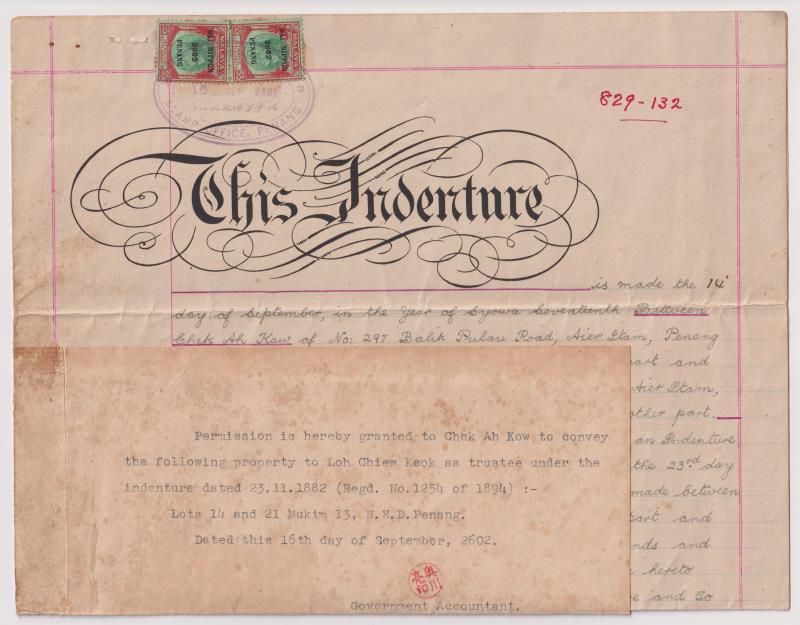 DAI NIPPON
2602
PENANG
DAI NIPPON
2602
PENANG
MALAYA
STAMP OFFICE, PENANG
829-132
This Indenture
is made the 14
day of September, in the Year of Syowa Seventeenth Between
Chek Ah Kaw of No: 297 Balik Pulau Road, Aier Itam, Penang
part and
Aier Itam,
other part.
an Indenture
the 23rd day
made between
part and
nds and
hereto
and To
Permission is hereby granted to Chek Ah Kow to convey
the following property to Loh Chiew Keok as trustee under the
indenture dated 23.11.1882 (Regd. No.1254 of 1894) :-
Lots 14 and 21 Mukim 13, N.E.D.Penang.
Dated this 16th day of September, 2602.
奥川
亮印
Government Accountant.